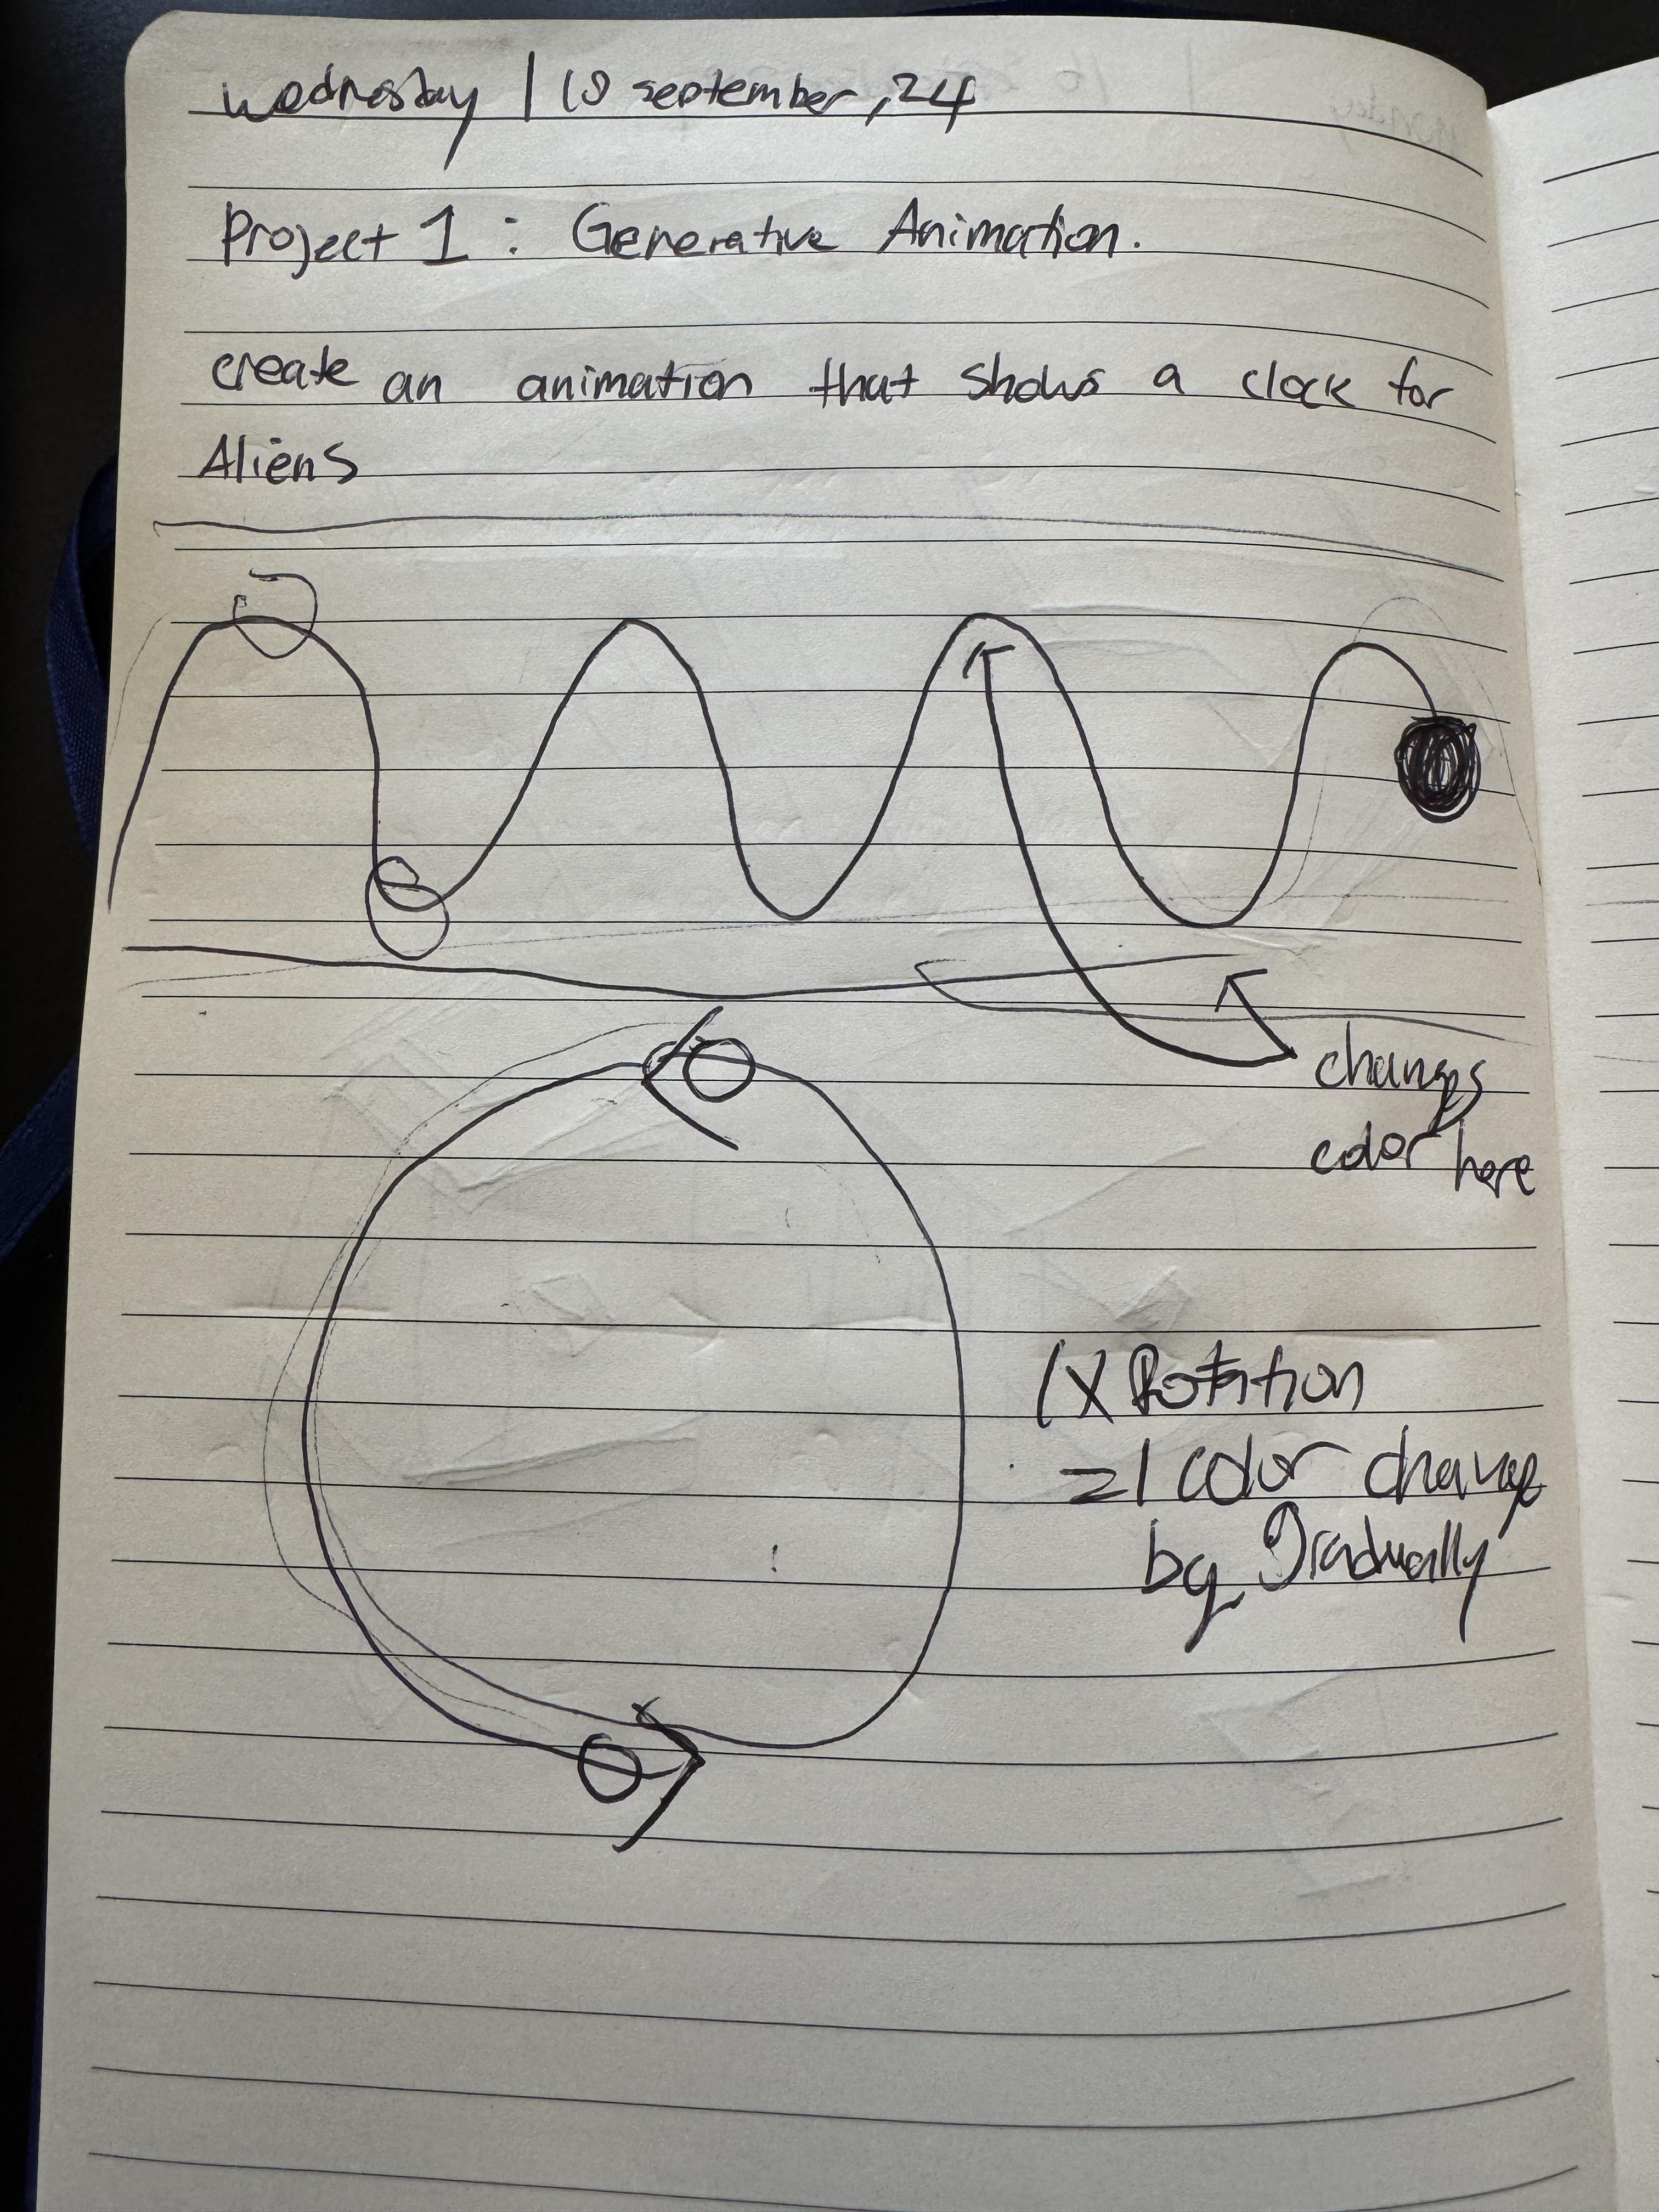 Wednesday | 18 september, 24
Project 1 : Generative Animation.
create an animation that shows a clock for
Aliens
changes
color here
1X Rotation
=1 color change
by Gradually